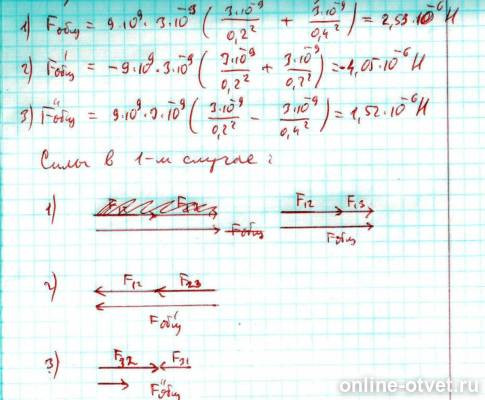 1) Fобщ = 9·10⁹·3·10⁻⁹ ( 3·10⁻⁹/0,2² + 3·10⁻⁹/0,4² ) = 2,53·10⁻⁶ Н
2) F'общ = -9·10⁹·3·10⁻⁹ ( 3·10⁻⁹/0,2² + 3·10⁻⁹/0,2² ) = -4,05·10⁻⁶ Н
3) F''общ = 9·10⁹·3·10⁻⁹ ( 3·10⁻⁹/0,2² - 3·10⁻⁹/0,4² ) = 1,52·10⁻⁶ Н
Силы в 1-м случае:
1) Fобщ F₁₂ F₁₃ Fобщ
2) F₁₂ F₂₃ F'общ
3) F₃₂ F₃₁ F''общ
online-otvet.ru